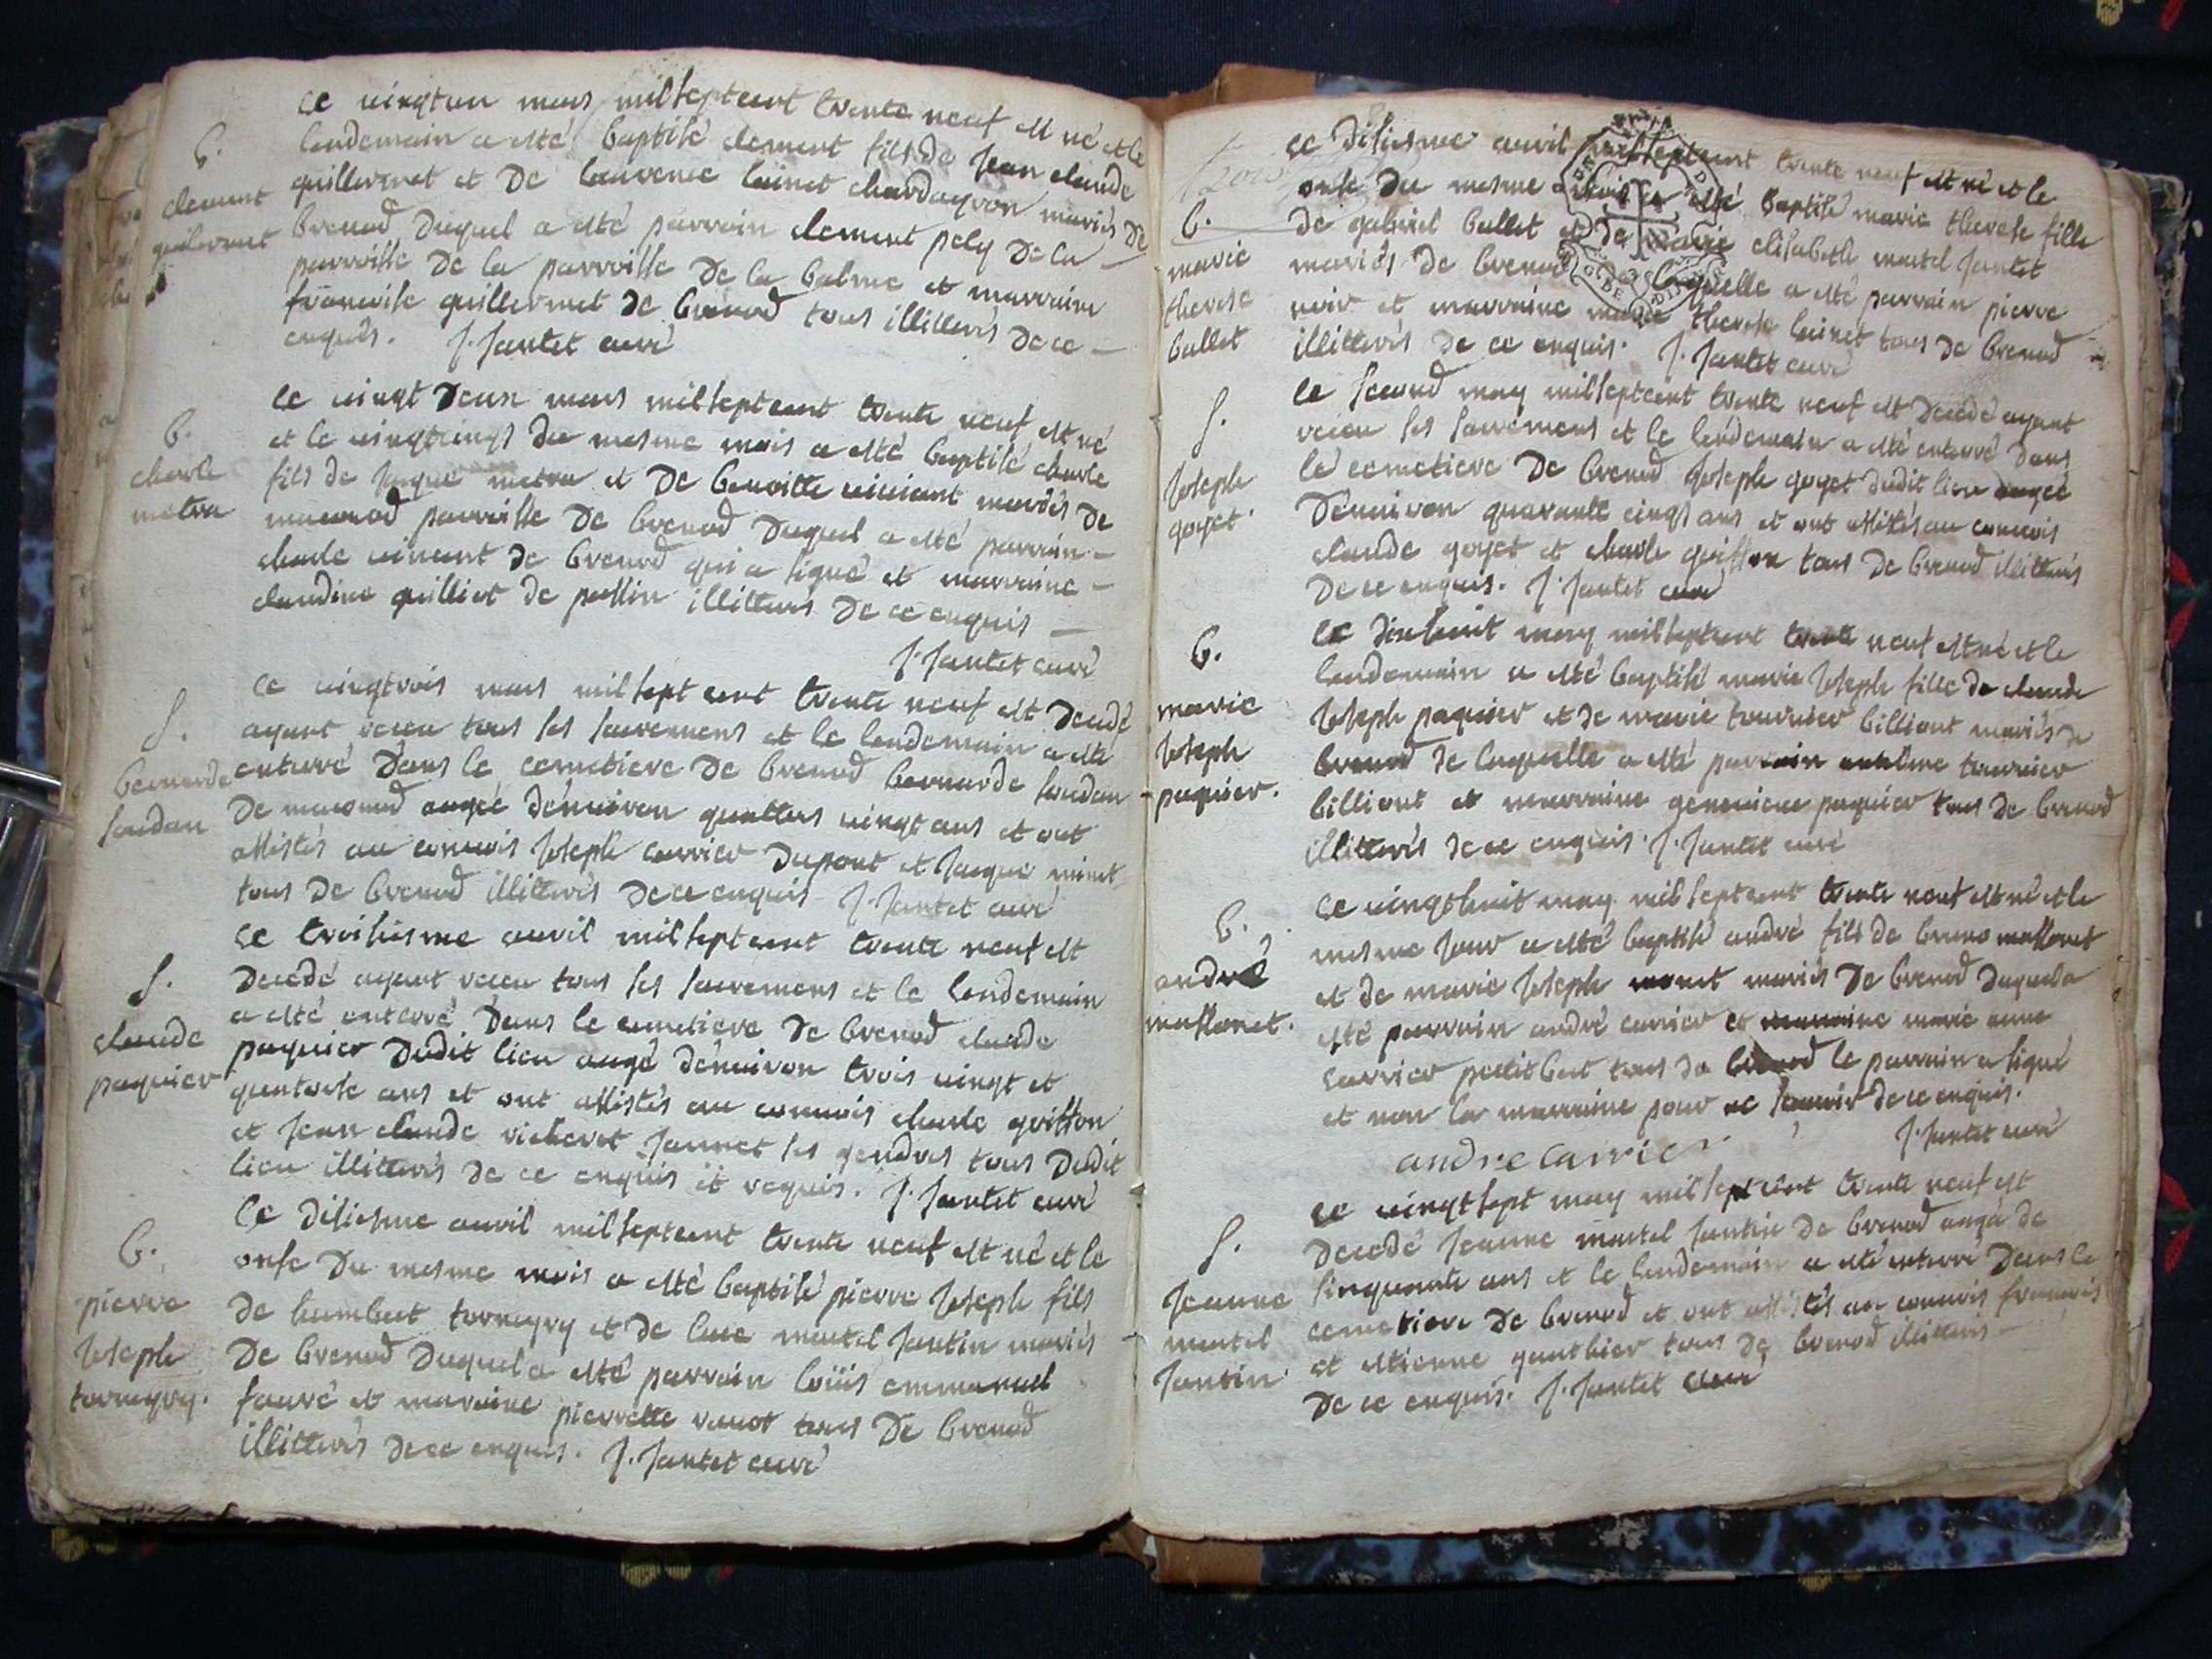 le vingtun mars milseptcent trente neuf est né et le
b. lendemain a esté baptisé clement fils de Jean claude
clement guillermet et De laurence loüinet chardaÿron mariés De
guilermet brenod Duquel a esté parrain clement pely De la
parroisse De la parroisse De la balme et marraine
francoise guillermet de brenod tous illitterés De ce
enquis. J. Jantet curé
le vingt Deux mars milseptcent trente neuf est né
b. et le vingtcinq du mesme mois a esté baptisé charle
charle fils de Jaque metra et De benoitte vinvant mariés De
metra maconod parroisse De brenod Duquel a esté parrain
charle vincent de brenod qui a signé et marraine
claudine guilliot de passin illitterés De ce enquis
J. Jantet curé
le vingtrois mars milsept cent trente neuf est Decedé
S. ayant receu tous ses sacremens et le lendemain a esté
bernarde enterré Dans le cemetiere De brenod bernarde soudan
soudan De maconod augée d'environ quattres vingt ans et ont
assistés au convois Joseph carrier Dupont et Jaque minet
tous De brenod illitterés De ce enquis J. Jantet curé
le troisiesme avril milseptcent trente neuf est
S. Decedé ayant receu tous ses sacremens et le lendemain
a esté enterré Dans le cemetiere De brenod claude
claude paquier Dudit lieu augé d'environ trois vingt et
paquier quatorse ans et ont assistés au convois charle griffon
et Jean claude richerot Jannet ses gendres tous Dudit
lieu illitterés de ce enquis et requis. J. Jantet curé
le disiesme avril milseptcent trente neuf est né et le
b. onse Du mesme mois a esté baptisé pierre Joseph fils
pierre de humbert tornegry et de luce martel Jantin mariés
Joseph De brenod Duquel a esté parrain loüis emmanuel
tornegry. favre et maraine pierrette ravot tous De brenod
illitterés De ce enquis. J. Jantet curé
le disiesme avril milseptcent trente neuf est né et le
onse du mesme mois a esté baptisé marie therese fille
b. de gabriel ballet et de marie elisabeth martel Jantet
marie mariés de brenod de laquelle a esté parrain pierre
therese noir et marraine marie therese loinet tous de brenod
ballet illitterés de ce enquis. J. Jantet curé
le second may milseptcent trente neuf est Decedé ayant
S. receu ses sacremens et le lendemain a esté enterré Dans
Joseph le cemetiere De brenod Joseph goyet dudit lieu augée
goyet D'environ quarante cinq ans et ont assistés au convois
claude goyet et charle griffon tous de brenod illitterés
De ce enquis. J. Jantet curé
b. le dixhuit may milseptcent trente neuf est né et le
lendemain a esté baptisé marie Joseph fille de claude
marie Joseph paquier et de marie tournier billiont mariés de
Joseph brenod de laquelle a esté parrain anthme tournier
paquier. billiont et marraine genevieve paquier tous de brenod
illitterés de ce enquis. J. Jantet curé
b. le vingthuit may milseptcent trente neuf est né et le
mesme Jour a esté baptisé andré fils de bruno massonet
andré et de marie Joseph monet mariés De brenod Duquel a
massonet. esté parrain andré carrier et marraine marie anne
carrier petitbut tous de brenod le parrain a signé
et non la marraine pour ne scavoir de ce enquis.
andre carrier J. Jantet curé
le vingtsept may milseptcent trente neuf est
S. Decedé Jeanne martel Jantin De brenod augé de
Jeanne sinquante ans et le lendemain a esté enterré Dans le
martel cemetiere De brenod et ont assistés au convois francois
Jantin. et estienne gauthier tous de brenod illitterés
De ce enquis. J. Jantet curé